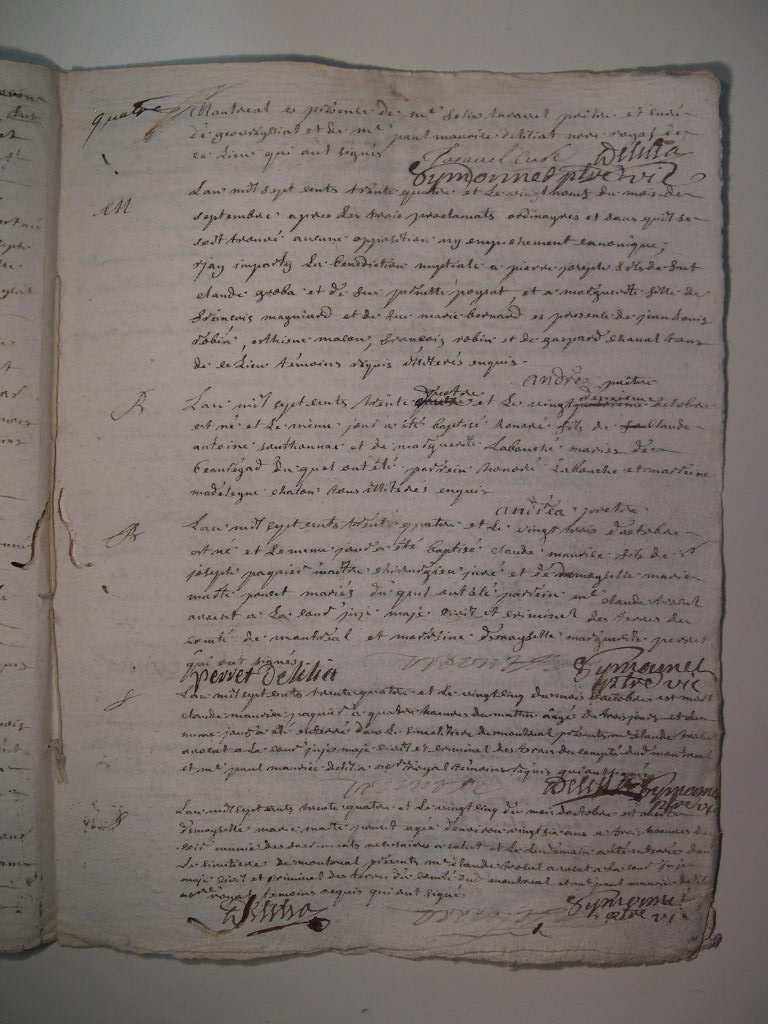 quatre
Montreal es présence de mr prêtre et curé
de et de mr paul maurice delilia nore royal de
ce lieu qui ont signés curé Delilia
Symonnet ptre vic
M
L'an mil sept cents trente quatre et le vingt du mois de
septembre apres les trois proclamats ordinayres et sans qu'il se
soit trouvé aucune opposition ny empechement canonique,
j'ay imparty la benediction nuptiale a pierre joseph fils de feu
claude groba et de feu poysat, et a marguerite fille de
françois magniard et de feu marie bernard es presence de jean louis
robin, esthiene macon, françois robin et de gaspard chanal tous
de ce lieu témoins requis illiterés enquis.
andré prêtre
B
L'an mil sept cents trente quatre et le vingt octobre
est né et le même jour a été baptisé honoré fils de claude
antoine et de marguerite Labouche mariés de
beauregard du quel ont été parrein honoré Labouche et marreine
madeleyne chalon tous illiterés enquis
andréa pretre
B
L'an mil sept cents trente quatre et le vingt trois d'octobre
est né et le meme jour a été baptisé claude maurice fils de sr
joseph paguier maître chirurgien juré et de demoyselle marie
marte perret mariés du quel ont été parrein mr claude
avocat a la cour juje maje civil et criminel des terres du
comté de montreal et marreine demoyselle marguerite perret
qui ont signés
perret Delilia Symonnet
ptre vic
S
L'an mil sept cents trente quatre et le vingt cinq du mois d'octobre est mort
claude maurice paguier a quatre heures du mattin âgé de trois jours et du
meme jour a été enterré dans le cimetiere de montreal présents mr claude
avocat a la cour juje maje civil et criminel des terres du compté dud montreal
et mr paul maurice delilia nore royal témoins requis qui ont signé
Delilia Symonnet
ptre vic
S
L'an mil sept cents trente quatre et le vingt cinq du mois d'octobre est morte
demoyselle marie marte perret agée d'environ vingt six ans a trois heures du
soir munie des sacrements necessaires a salut et le lendemain a été enterrée dans
le cimetiere de montreal présents mr claude avocat a la cour juje
maje civil et criminel des terres du comté dud montreal et mr paul maurice delilia
nore royal témoins requis qui ont signé.
Delilia Symonnet
ptre vic